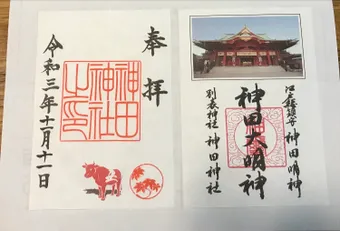 江戸総鎮守 神田明神
神田大明神
別表神社 神田神社
奉拝
神田神社之印
令和三年十一月十一日